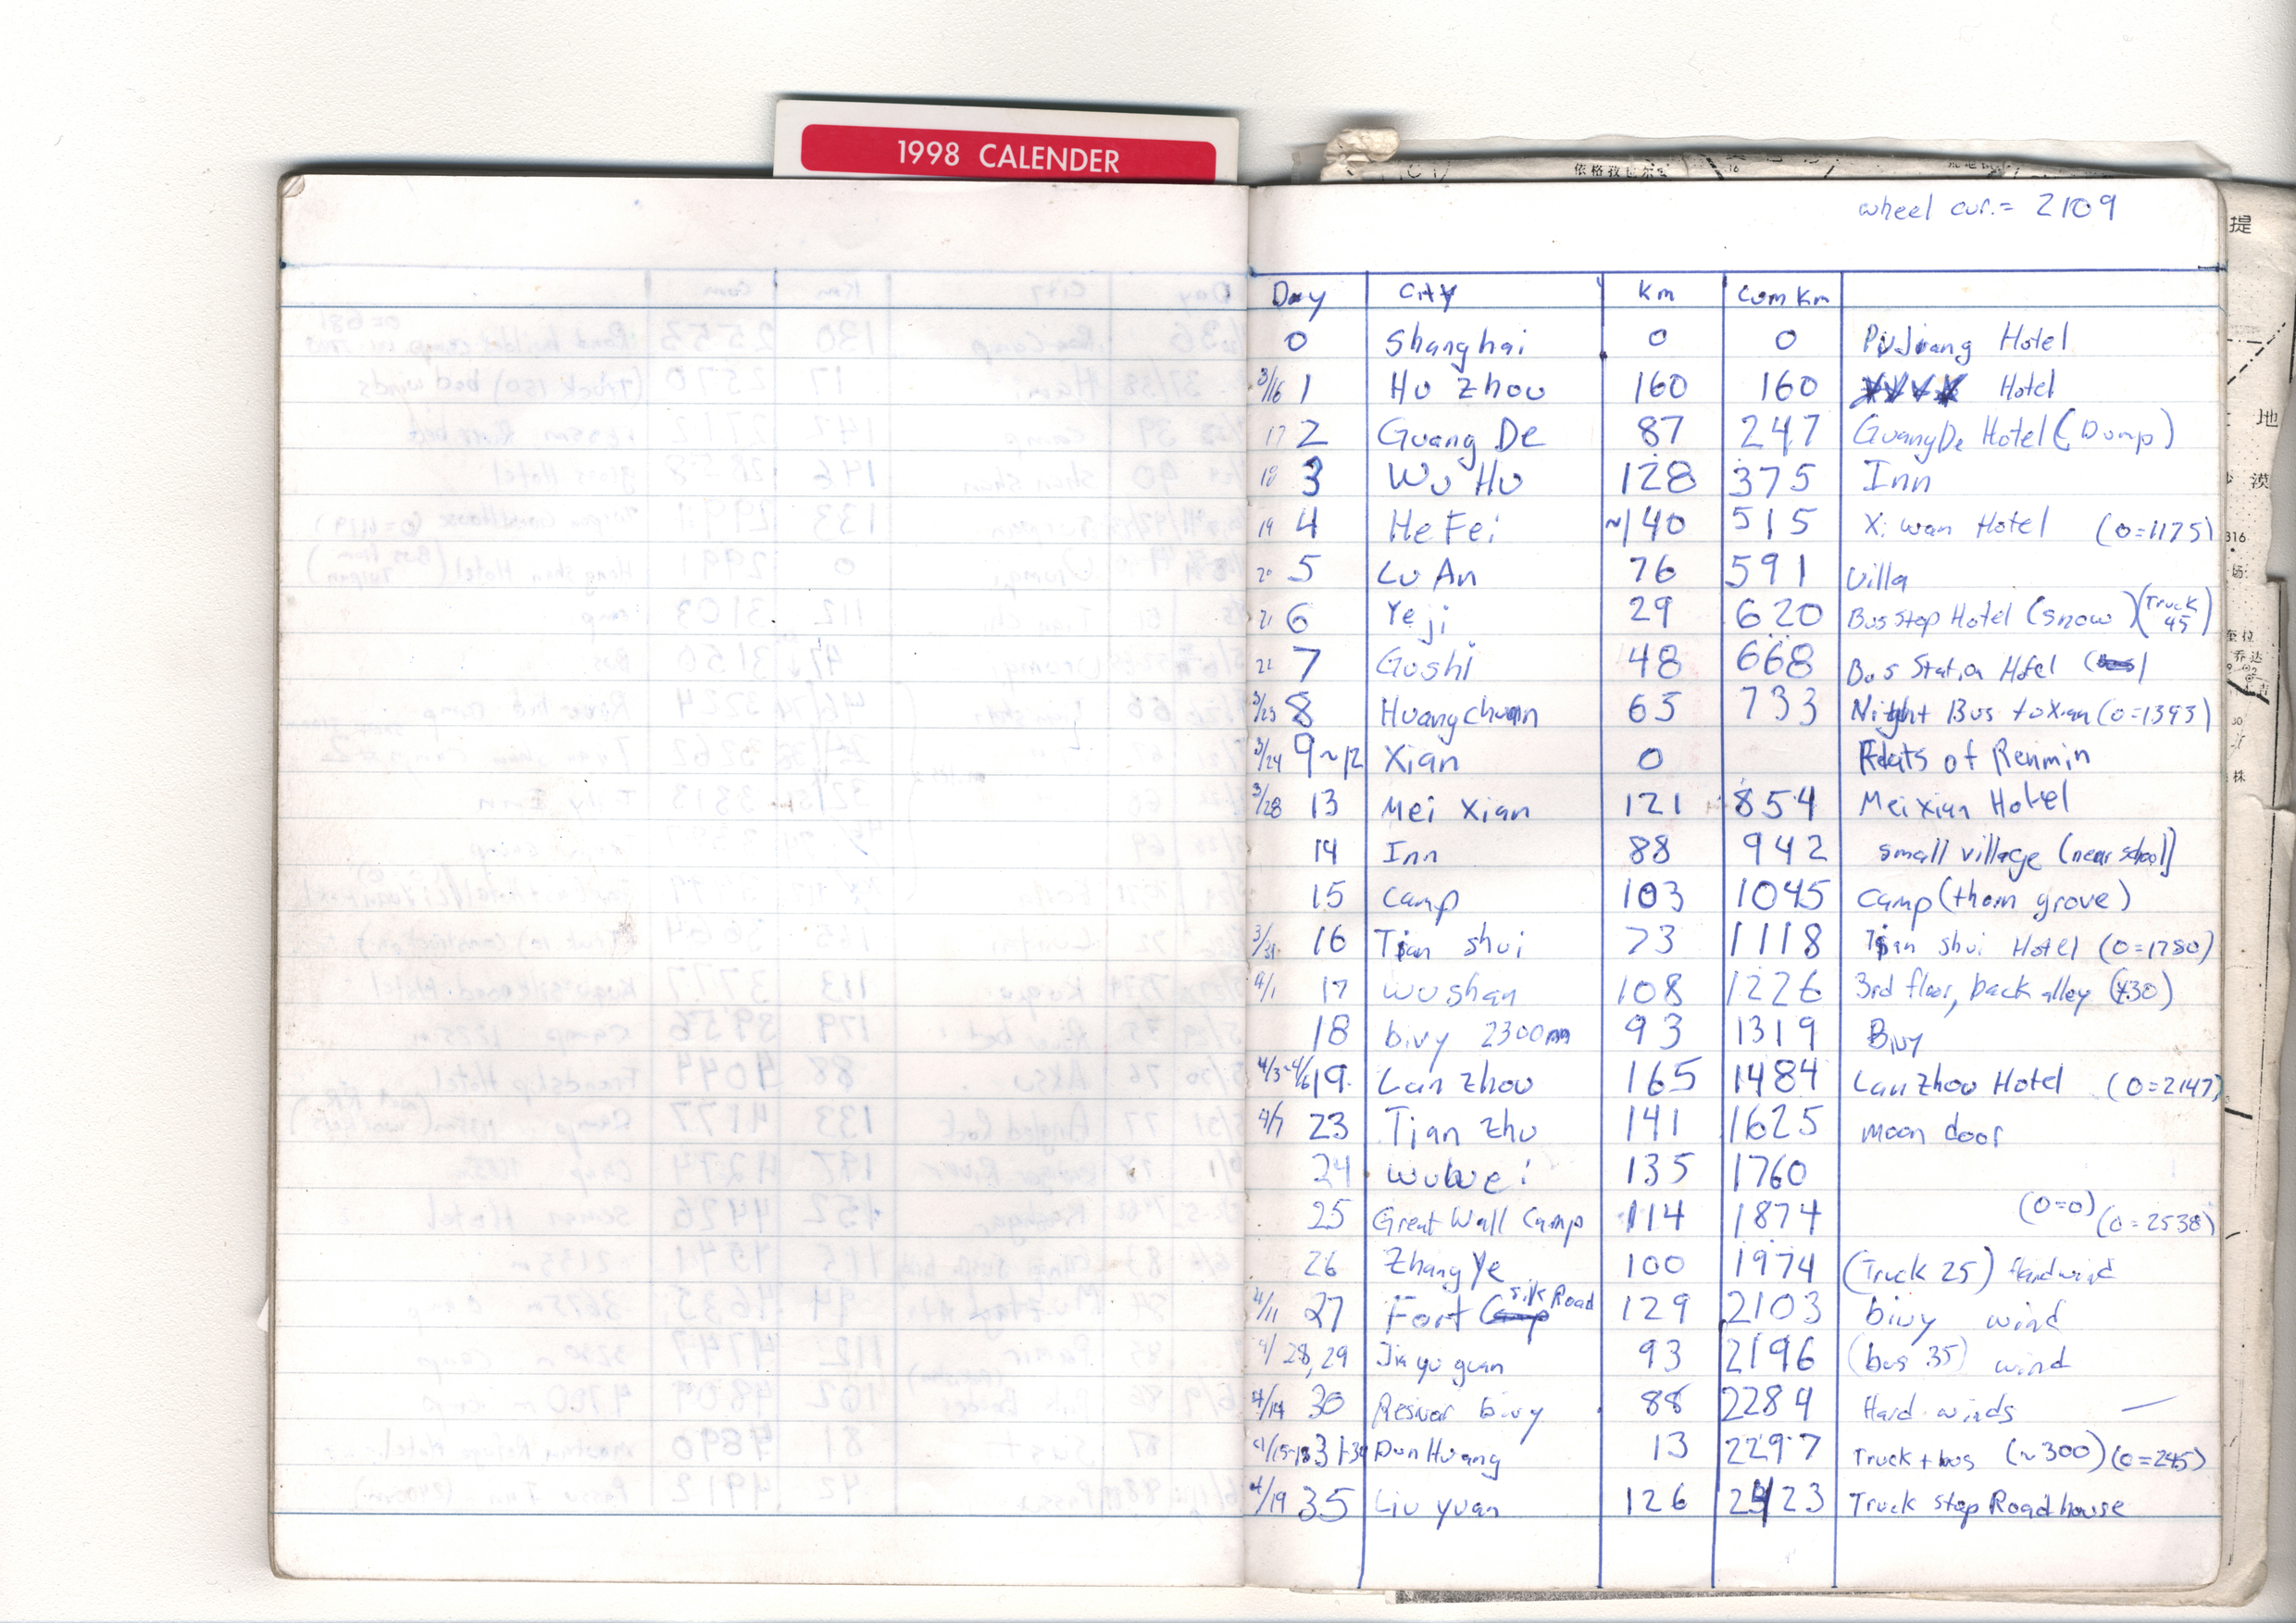 1998 CALENDER
wheel cur. = 2109
Day City Km Cum Km
0 Shanghai 0 0 PuJiang Hotel
3/16 1 Hu Zhou 160 160 Hotel
17 2 Guang De 87 247 GuangDe Hotel (Dump)
18 3 Wu Hu 128 375 Inn
19 4 He Fei ~140 515 Xi wan Hotel (0=1175)
20 5 Lu An 76 591 Villa
21 6 Ye ji 29 620 Bus stop Hotel (snow) (Truck 45)
22 7 Gushi 48 668 Bus Station Hotel
3/23 8 Huangchuan 65 733 Night Bus to Xian (0=1393)
3/24 9~12 Xian 0 Flats of Renmin
3/28 13 Mei Xian 121 854 Mei Xian Hotel
14 Inn 88 942 small village (near school)
15 camp 103 1045 camp (thorn grove)
3/31 16 Tian shui 73 1118 Tian shui Hotel (0=1780)
4/1 17 wushan 108 1226 3rd floor, back alley (¥30)
18 bivy 2300m 93 1319 Bivy
4/3-4/6 19 Lan Zhou 165 1484 Lan Zhou Hotel (0=2147)
4/7 23 Tian Zhu 141 1625 moon door
24 wuwei 135 1760
25 Great Wall Camp 114 1874 (0=0) (0=2538)
26 Zhang Ye 100 1974 (Truck 25) Hardwind
4/11 27 Fort Silk Road 129 2103 bivy wind
4/ 28, 29 Jia yu guan 93 2196 (bus 35) wind
4/14 30 Resvor bivy 88 2284 Hard winds —
4/15-18 31-34 Dun Huang 13 2297 Truck + bus (~300) (0=245)
4/19 35 Liu yuan 126 2423 Truck stop Roadhouse